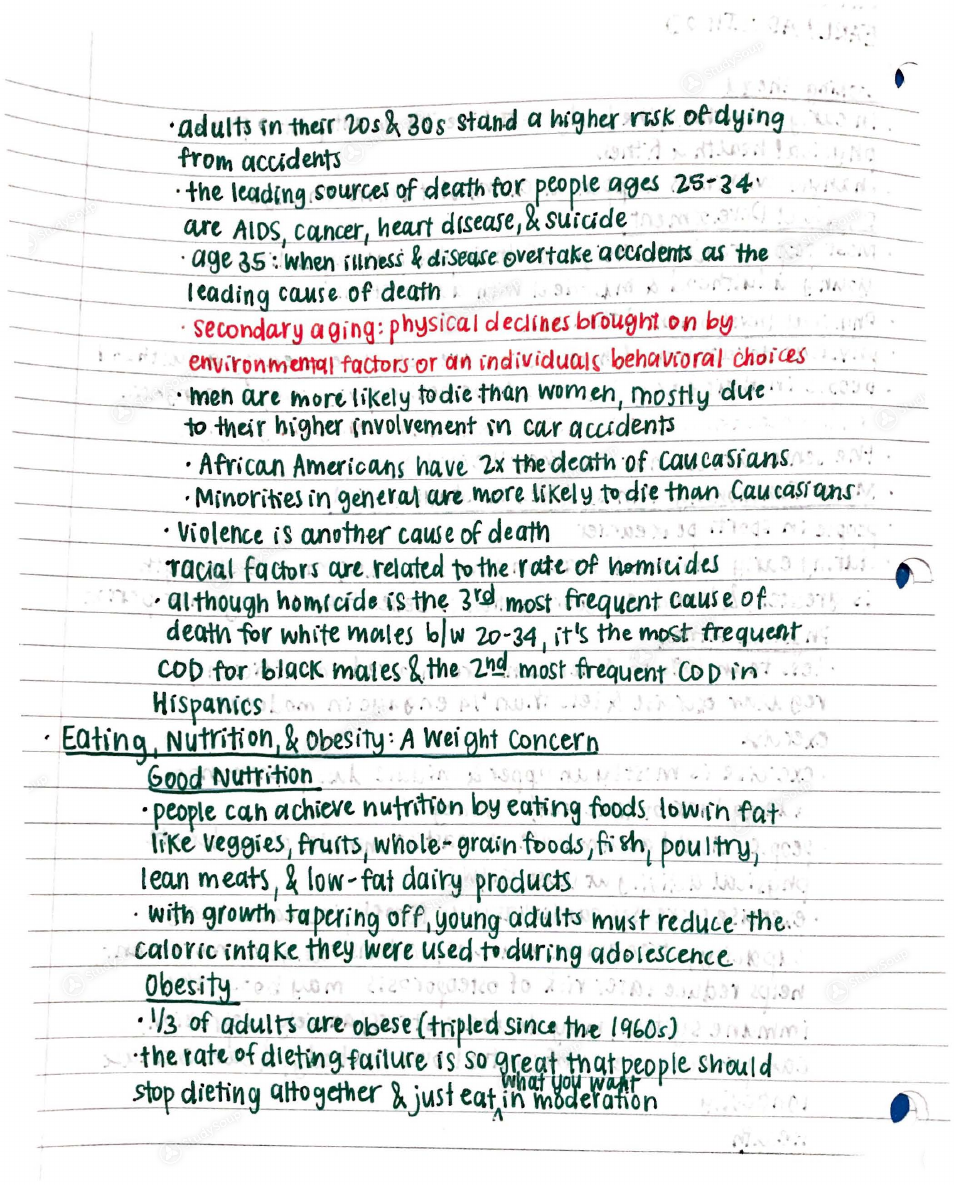 · adults in their 20s & 30s stand a higher risk of dying
from accidents
· the leading sources of death for people ages 25-34
are AIDS, cancer, heart disease, & suicide
· age 35: when illness & disease overtake accidents as the
leading cause of death
· secondary aging: physical declines brought on by
environmental factors or an individuals behavioral choices
· men are more likely to die than women, mostly due
to their higher involvement in car accidents
· African Americans have 2x the death of Caucasians
· Minorities in general are more likely to die than Caucasians
· Violence is another cause of death
racial factors are related to the rate of homicides
· although homicide is the 3rd most frequent cause of
death for white males b/w 20-34, it's the most frequent
COD for black males & the 2nd most frequent COD in
Hispanics
· Eating, Nutrition, & Obesity: A Weight Concern
Good Nutrition
· people can achieve nutrition by eating foods low in fat
like veggies, fruits, whole-grain foods, fish, poultry,
lean meats, & low-fat dairy products
· with growth tapering off, young adults must reduce the
caloric intake they were used to during adolescence
Obesity
· 1/3 of adults are obese (tripled since the 1960s)
· the rate of dieting failure is so great that people should
stop dieting altogether & just eat what you want in moderation